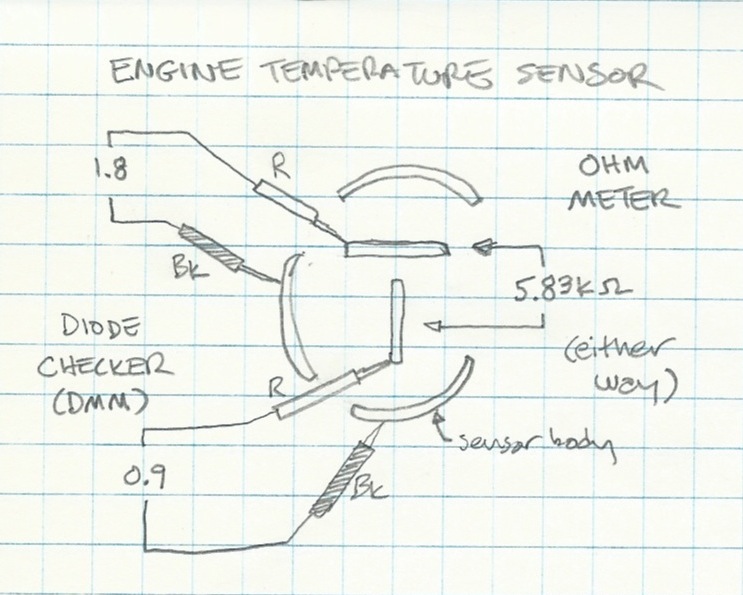 ENGINE TEMPERATURE SENSOR
1.8
R
Bk
OHM
METER
5.83KΩ
(either
way)
DIODE
CHECKER
(DMM)
R
sensor body
0.9
Bk